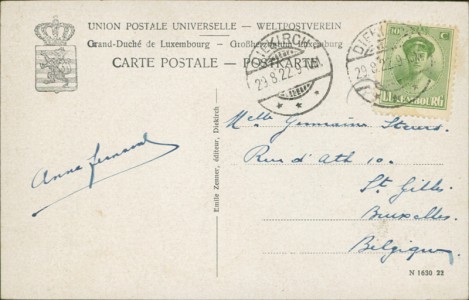 UNION POSTALE UNIVERSELLE — WELTPOSTVEREIN
Grand-Duché de Luxembourg — Großherzogthum Luxemburg
CARTE POSTALE — POSTKARTE
DIEKIRCH
29.8.22
DIEKIRCH
29.8.22
LUXEMBOURG
Melle Germaine
Rue d'Ath 10.
St. Gilles
Bruxelles.
Belgique.
Anna
Emile Zenner, éditeur, Diekirch
N 1630 22